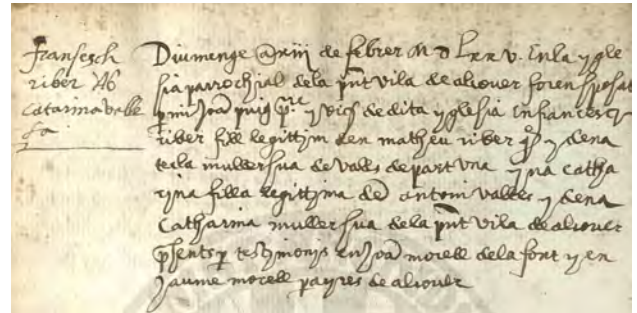 fransesch
riber Ab
Catarina valle
sa
Diumenge a xiii de febrer M D Lxxv. En la ygle
sia parrochial dela pñt vila de alcover foren sposat
p mi Joā puig pre y vici de dita yglesia En francesch
riber fill legittim den matheu riber qº y dena
tecla muller sua de valls de part una y na catha
rina filla legittima de antoni valles y dena
Catharina muller sua dela pñt vila de alcover
pñents p testimonis en Joā morell dela font y en
Jaume morell payres de alcover